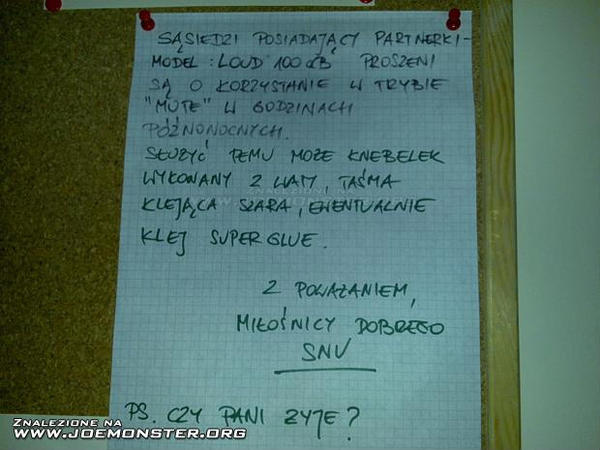 SĄSIEDZI POSIADAJĄCY PARTNERKI -
MODEL : LOUD 100 dB PROSZENI
SĄ O KORZYSTANIE W TRYBIE
"MUTE" W GODZINACH
PÓŹNONOCNYCH.
SŁUŻYĆ TEMU MOŻE KNEBELEK
WYKONANY Z WATY, TAŚMA
KLEJĄCA SZARA, EWENTUALNIE
KLEJ SUPER GLUE.
Z POWAŻANIEM,
MIŁOŚNICY DOBREGO
SNU
PS. CZY PANI ŻYJE?
ZNALEZIONE NA
WWW.JOEMONSTER.ORG